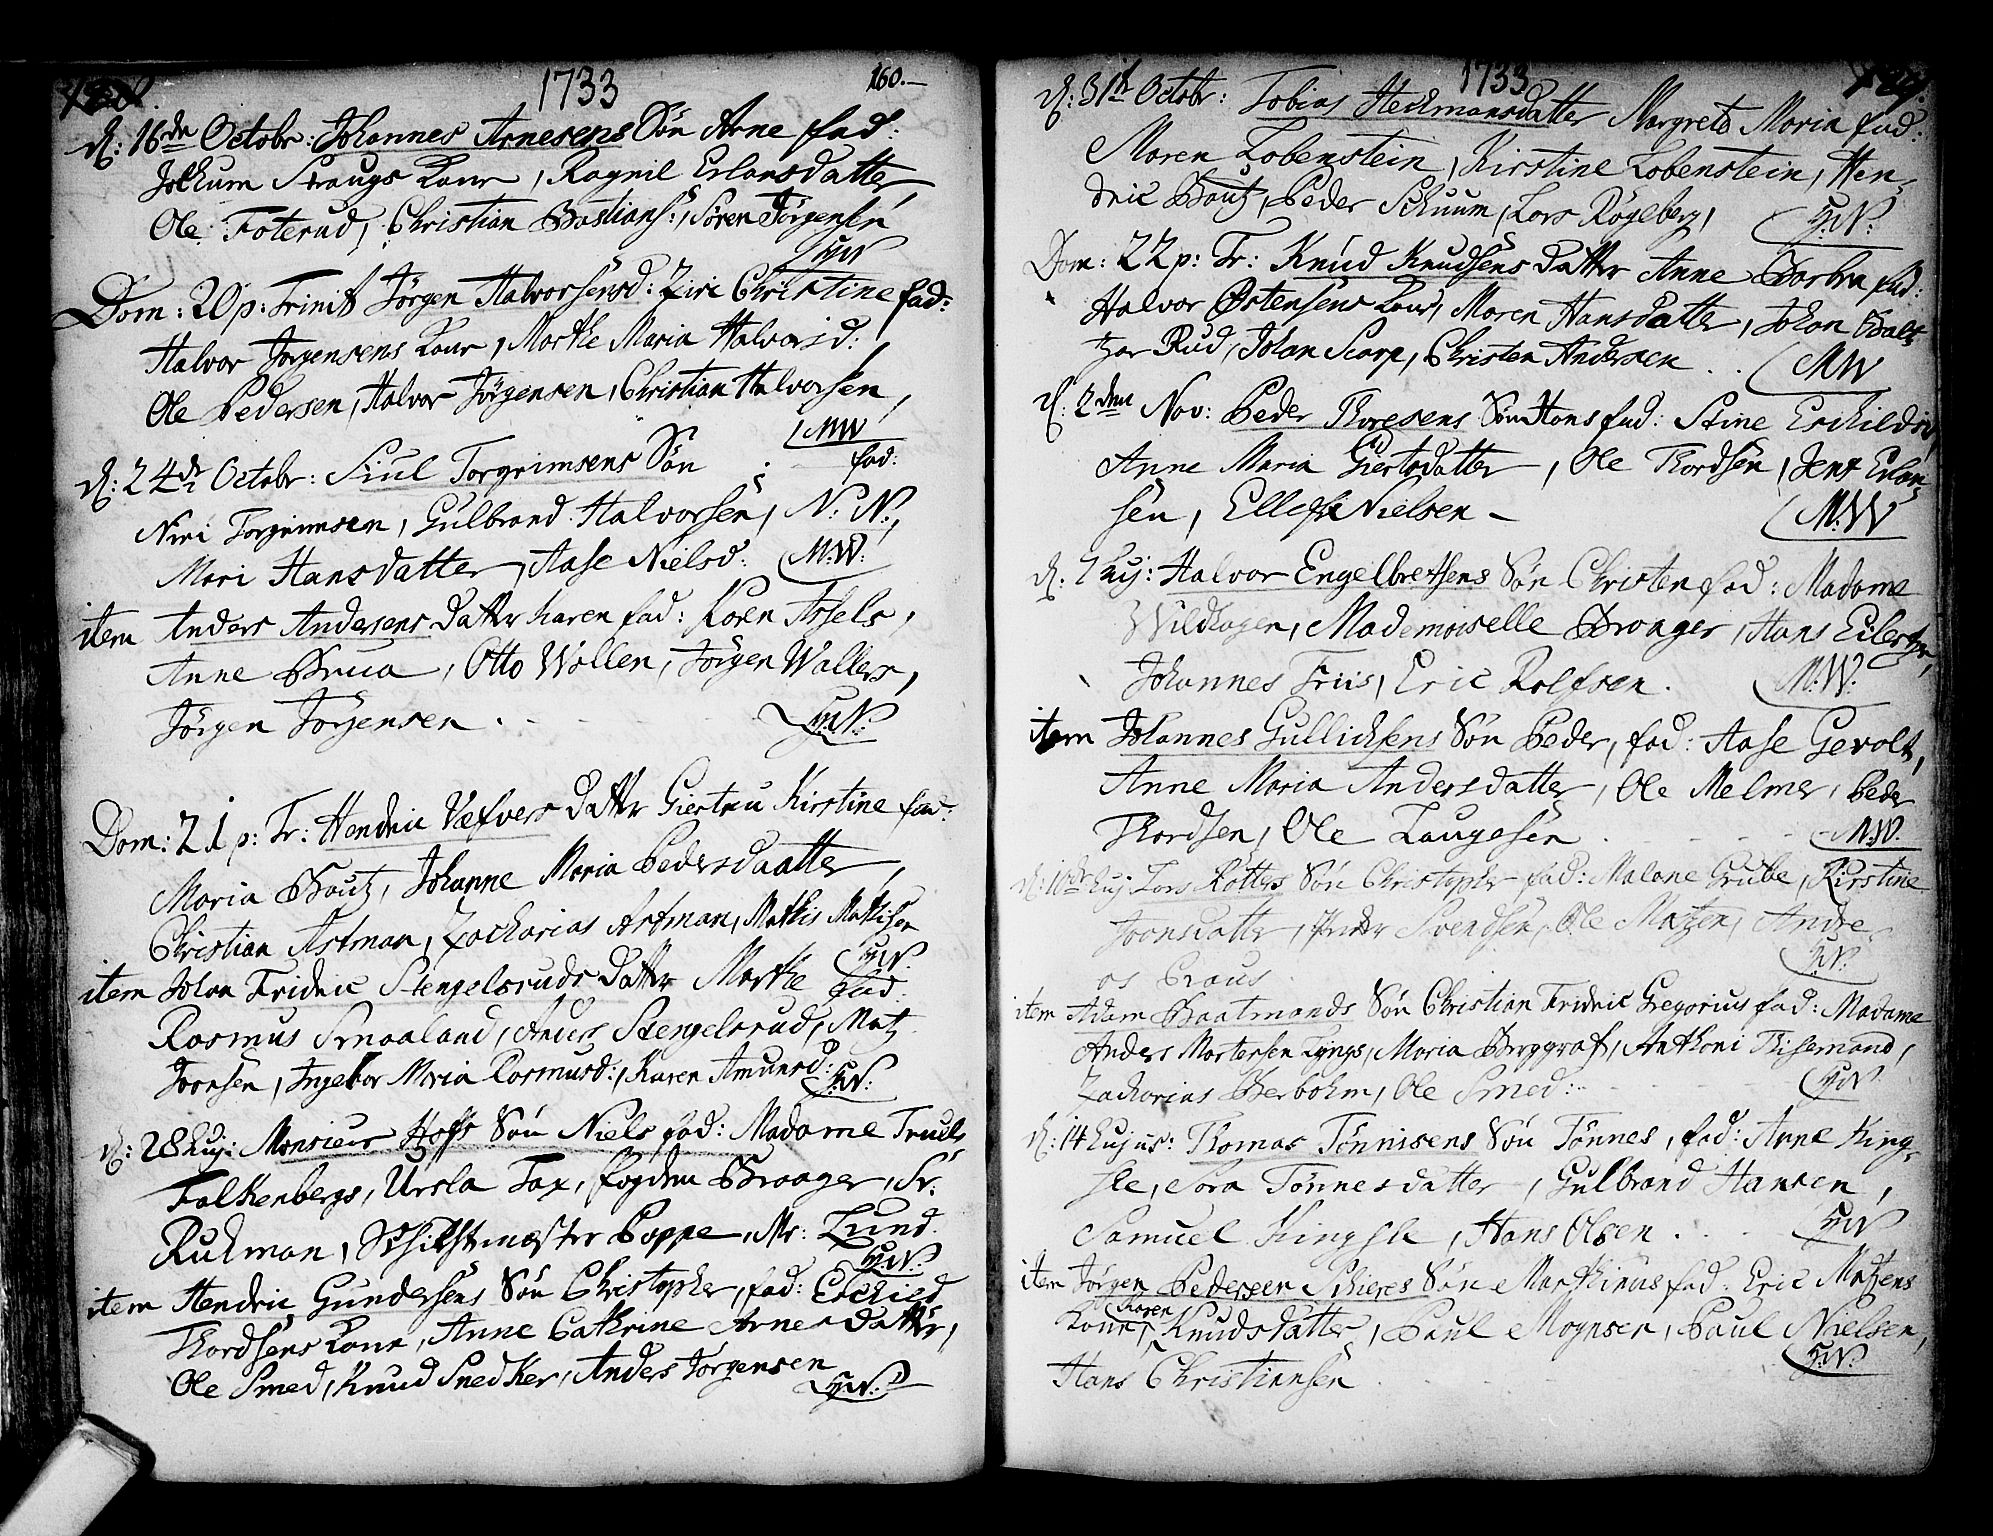 1733 160.
d: 16de Octobr: Johannes Arnesens Søn Arne fad:
Jockum Straugs Konr, Ragnil Erlansdatter,
Ole Foterud, Christian Bastians:, Søren Jørgensen
HW
Dom: 20 p: Trinit Jørgen Halvorsensd: Ziri Christine fad:
Halvor Jørgensens Konr, Marthe Maria Halvorsd:,
Ole Pedersen, Halvor Jørgensen, Christian Halvorsen,
MW
d: 24de Octobr: Siul Torgrimsens Søn fad:
Niri Torgrimsen, Gulbrand Halvorsen, N: N:,
Mari Hansdatter, Aase Nielsd: M:W:
item Anders Andersens Datter Karen fad: Karen Axsels,
Anne Brua, Otto Wollen, Jørgen Wallers,
Jørgen Jørgensen. H:W:
Dom: 21 p: Tr: Hendric Væfvers Datter Giertru Kirstine fad:
Maria Bautz, Johanne Maria Pedersdaatter,
Christian Artman, Zacharias Artman, Mathis Mathisen
H:W:
item Johan Fridric Stengelsruds Datter Marthe fad:
Rasmus Smaaland, Anders Stengelsrud, Matz
Joensen, Ingebor Maria Rasmusd:, Karen Amunsd:
H:W:
d: 28 huj: Monsieur Hofs Søn Niels fad: Madame Truels
Falkenbergs, Ursla Fax, fogden Braager, Sr:
Rukman, Schichtmæster Poppe, Mr: Lund.
H:W:
item Hendric Gundersens Søn Christopher, fad: Eschild
Thordsens Konr, Anne Cathrine Arnesdatter,
Ole Smed, Knud Snedker, Anders Jørgensen
H:W:
1733
d: 31te Octobr: Tobias Heckmansdatter Margrete Maria fad:
Maren Lobenstein, Kirstine Lobenstein, Hen-
dric Bautz, Peder Schuum, Lars Røgeberg,
H:W:
Dom: 22 p: Tr: Knud Knudsens Datter Anne Barbra fad:
Halvor Østensens Konr, Maren Hansdatter, Johan Balt-
zar Rud, Johan Scarp, Christen Andersen. MW
d: 2den Nov: Peder Thoresens Søn Hans fad: Stine Eschildsd,
Anne Maria Giertsdatter, Ole Thordsen, Jens Erlan-
sen, Ellef Nielsen - M:W
d: 7 huj: Halvor Engelbretsens Søn Christen fad: Madame
Wildhagen, Mademoiselle Braager, Hans Eilertsen,
Johannes Friis, Eric Rolfsen. M:W:
item Johannes Gullichsens Søn Peder, fad: Aase Gevolt,
Anne Maria Andersdatter, Ole Melmer, Peder
Thordsen, Ole Laugesen. M:W:
d: 10de huj: Lars Rotters Søn Christopher fad: Malene Grube, Kirstine
Joensdatter, Peder Svendsen, Ole Matzen, Andre-
as Praus. H:W:
item Adam Baatmands Søn Christian Fridric Gregorius fad: Madame
Anders Mortensen Lyngs, Maria Burggraf, Anthoni Thisemand,
Zacharias Berbohm, Ole Smed: H:W
d: 14 hujus: Thomas Tønnisens Søn Tønnes, fad: Anne King-
sle, Sara Tønnesdatter, Gulbrand Hansen,
Samuel Kingsle, Hans Olsen. H:W
item Jørgen Pedersen Schieres Søn Marthinus fad: Eric Matzens
Konr, Karen Knudsdatter, Paul Mognsen, Paul Nielsen,
Hans Christiansen H:W: